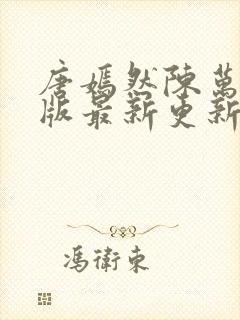 唐嫣然陳萬
版最新更新
馮衛東